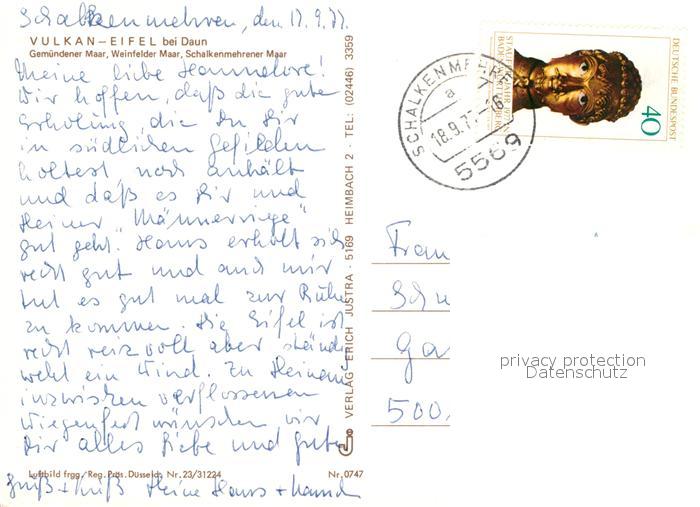 Schalkenmehren, den 17. 9. 77.
VULKAN-EIFEL bei Daun
Gemündener Maar, Weinfelder Maar, Schalkenmehrener Maar
Meine liebe Hannelore!
Wir hoffen, daß die gute
Erholung, die Du Dir
in südlichen Gefilden
holtest, noch anhält
und daß es Dir und
Deiner "Männerriege"
gut geht. Hans erholt sich
recht gut und auch mir
tut es gut mal zur Ruhe
zu kommen. Die Eifel ist
recht reizvoll aber ständig
weht ein Wind. Zu Deinem
inzwischen verflossenen
Wiegenfest wünschen wir
Dir alles Liebe und Gute
Luftbild frgg./Reg. Präs. Düsseld. Nr. 23/31224
Nr. 0747
Gruß + Kuß Deine Hans +
VERLAG ERICH JUSTRA · 5169 HEIMBACH 2 · TEL: (02446) 3359
SCHALKENMEHREN
a
18.9.77-16
5569
DEUTSCHE BUNDESPOST
40
STAUFERJAHR 1977
BADEN-WÜRTTEMBERG
Frau
Schu
Ga
500
privacy protection
Datenschutz